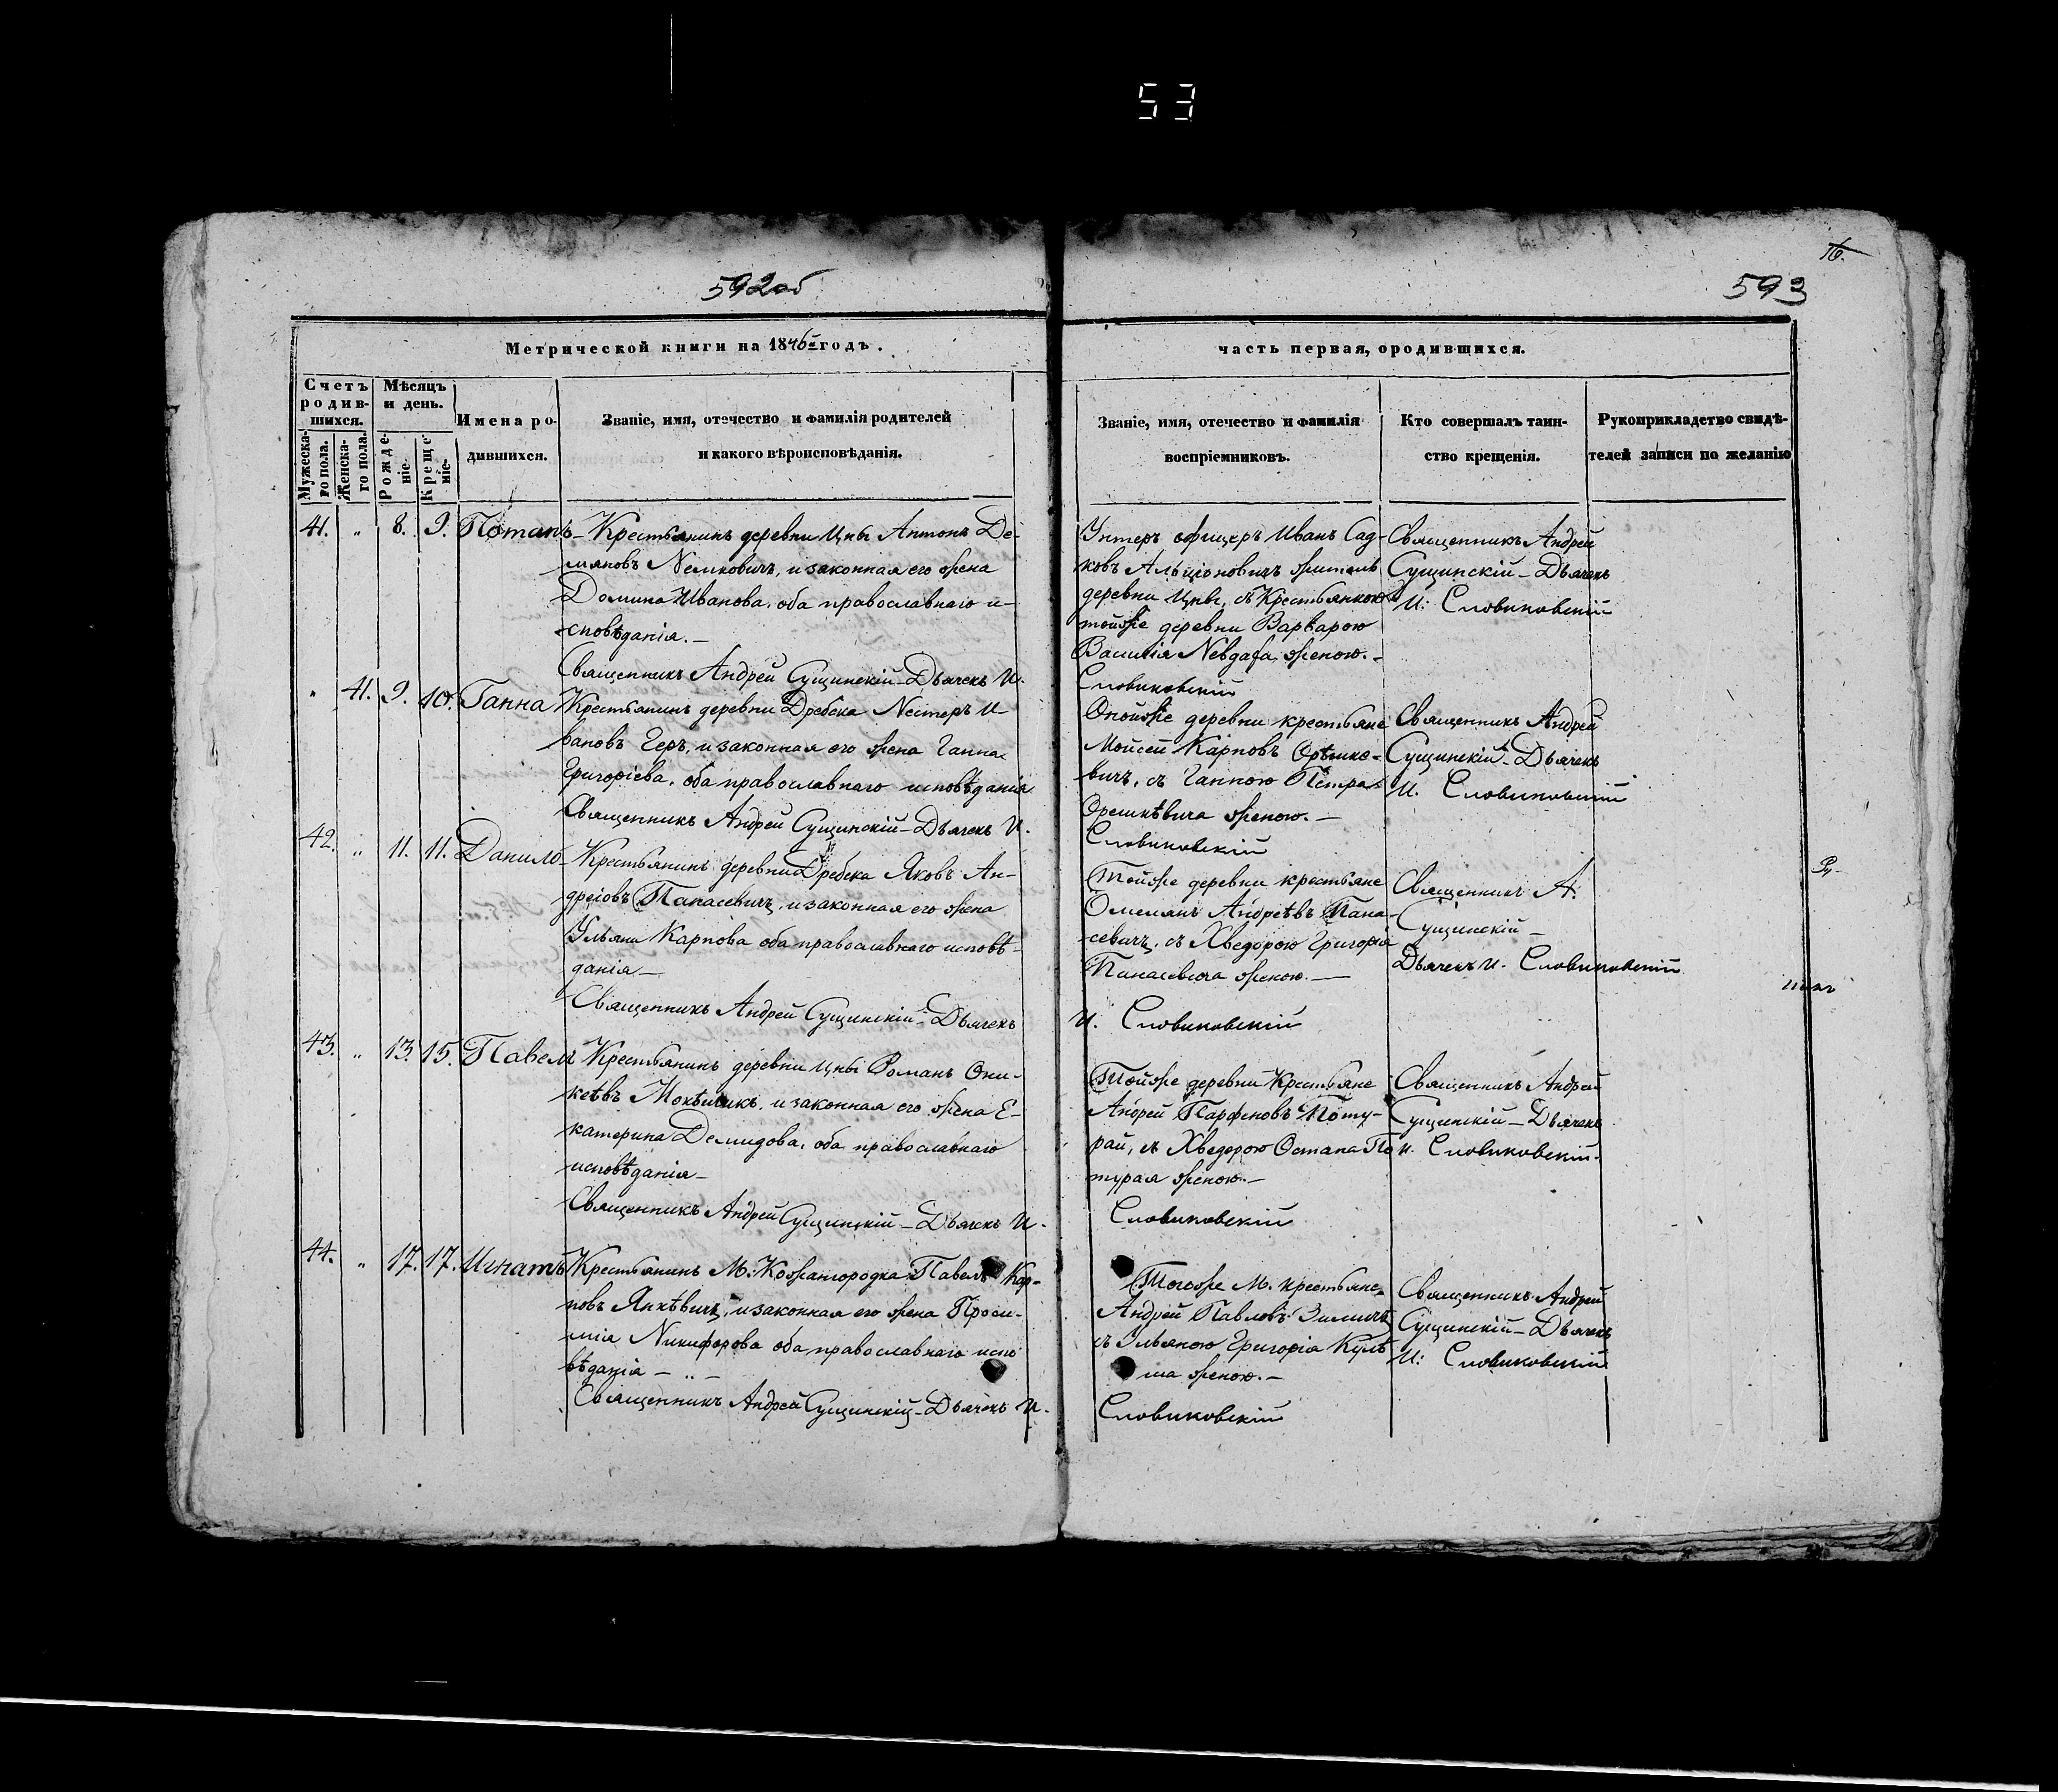 53
592об
593
Метрической книги на 1846 годъ.
часть первая, ородившихся.
Счетъ родив-шихся.
Мужеска-го пола.
Женска-го пола.
Мѣсяцъ и день.
Рожде-ніе.
Креще-ніе.
Имена ро-дившихся.
Званіе, имя, отечество и фамилія родителей
и какого вѣроисповѣданія.
Званіе, имя, отечество и фамилія
воспріемниковъ.
Кто совершалъ таин-
ство крещенія.
Рукоприкладство свидѣ-
телей записи по желанію
41. „ 8. 9. Потапъ
Крестьянинъ деревни Цны Антонъ Де-
мяновъ Немковичъ, и законная его жена
Домна Иванова, оба православнаго и-
сповѣданія.—
Священникъ Андрей Сущинскій—Дьячекъ И.
Унтеръ офицеръ Иванъ Сад-
ковъ житель
деревни Цны, съ Крестьянкою
тойже деревни Варварою
Василія женою.—
Словиковскій
Священникъ Андрей
Сущинскій—Дьячекъ
И: Словиковскій
„ 41. 9. 10. Ганна
Крестьянинъ деревни Дребска Нестеръ И-
вановъ Геръ, и законная его жена Ганна
Григоріева, оба православнаго исповѣданія
Священникъ Андрей Сущинскій—Дьячекъ И.
Оnойже деревни крестьяне
Мойсей Карповъ Орѣшке-
вичъ, съ Ганною Петра
Орешкѣвича женою.—
Словиковскій
Священникъ Андрей
Сущинскій—Дьячекъ
И. Словиковскій
42. „ 11. 11. Данило
Крестьянинъ деревни Дребска Яковъ Ан-
дреіовъ Панасевичъ, и законная его жена
Ульяна Карпова оба православнаго исповѣ-
данія—
Священникъ Андрей Сущинскій—Дьячекъ
Тойже деревни крестьяне
Омелянъ Андреѣвъ Пана-
севичъ, съ Хведорою Григорія
Панасевича женою.—
И. Словиковскій
Священникъ А.
Сущинскій—
Дьячекъ И. Словиковскій
43. „ 13. 15. Павелъ
Крестьянинъ деревни Цны Романъ Они-
кеѣвъ и законная его жена Е-
катерина Демидова, оба православнаго
исповѣданія—
Священникъ Андрей Сущинскій—Дьячекъ И.
Тойже деревни Крестьяне
Андрей Парфеновъ Поту-
рай, съ Хведорою Остапа По-
турая женою.—
Словиковскій
Священникъ Андрей
Сущинскій—Дьячекъ
И. Словиковскій.
44. „ 17. 17. Игнатъ
Крестьянинъ М: Кожангородка Павелъ Кар-
повъ Янкѣвичъ, и законная его жена
Никифорова оба православнаго испо
вѣданія — „ —
Священникъ Андрей Сущинскій—Дьячекъ И.
Тогоже М. крестьяне
Андрей Павловъ
съ Ульяною Григорія
женою.—
Словиковскій
Священникъ Андрей
Сущинскій—Дьячекъ
И: Словиковскій